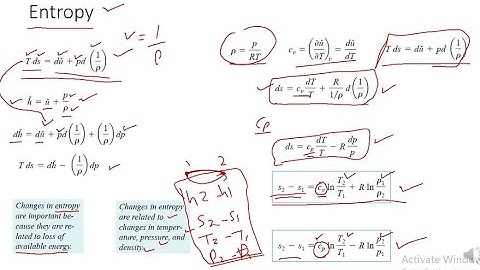 Entropy
v = 1/ρ
T ds = dû + pd(1/ρ)
ĥ = û + p/ρ
dĥ = dû + pd(1/ρ) + (1/ρ)dp
T ds = dĥ − (1/ρ)dp
Changes in entropy
are important be-
cause they are re-
lated to loss of
available energy.
Changes in entropy
are related to
changes in temper-
ature, pressure, and
density.
1 2
h2 h1
S2 − S1
T2 − T1
ρ = p/RT
c_v = (∂û/∂T)_v = dû/dT
T ds = dû + pd(1/ρ)
ds = c_v dT/T + R/(1/ρ) d(1/ρ)
Cp
ds = c_p dT/T − R dp/p
s₂ − s₁ = c_v ln T₂/T₁ + R ln ρ₁/ρ₂
s₂ − s₁ = c_p ln T₂/T₁ − R ln p₂/p₁
Activate Window